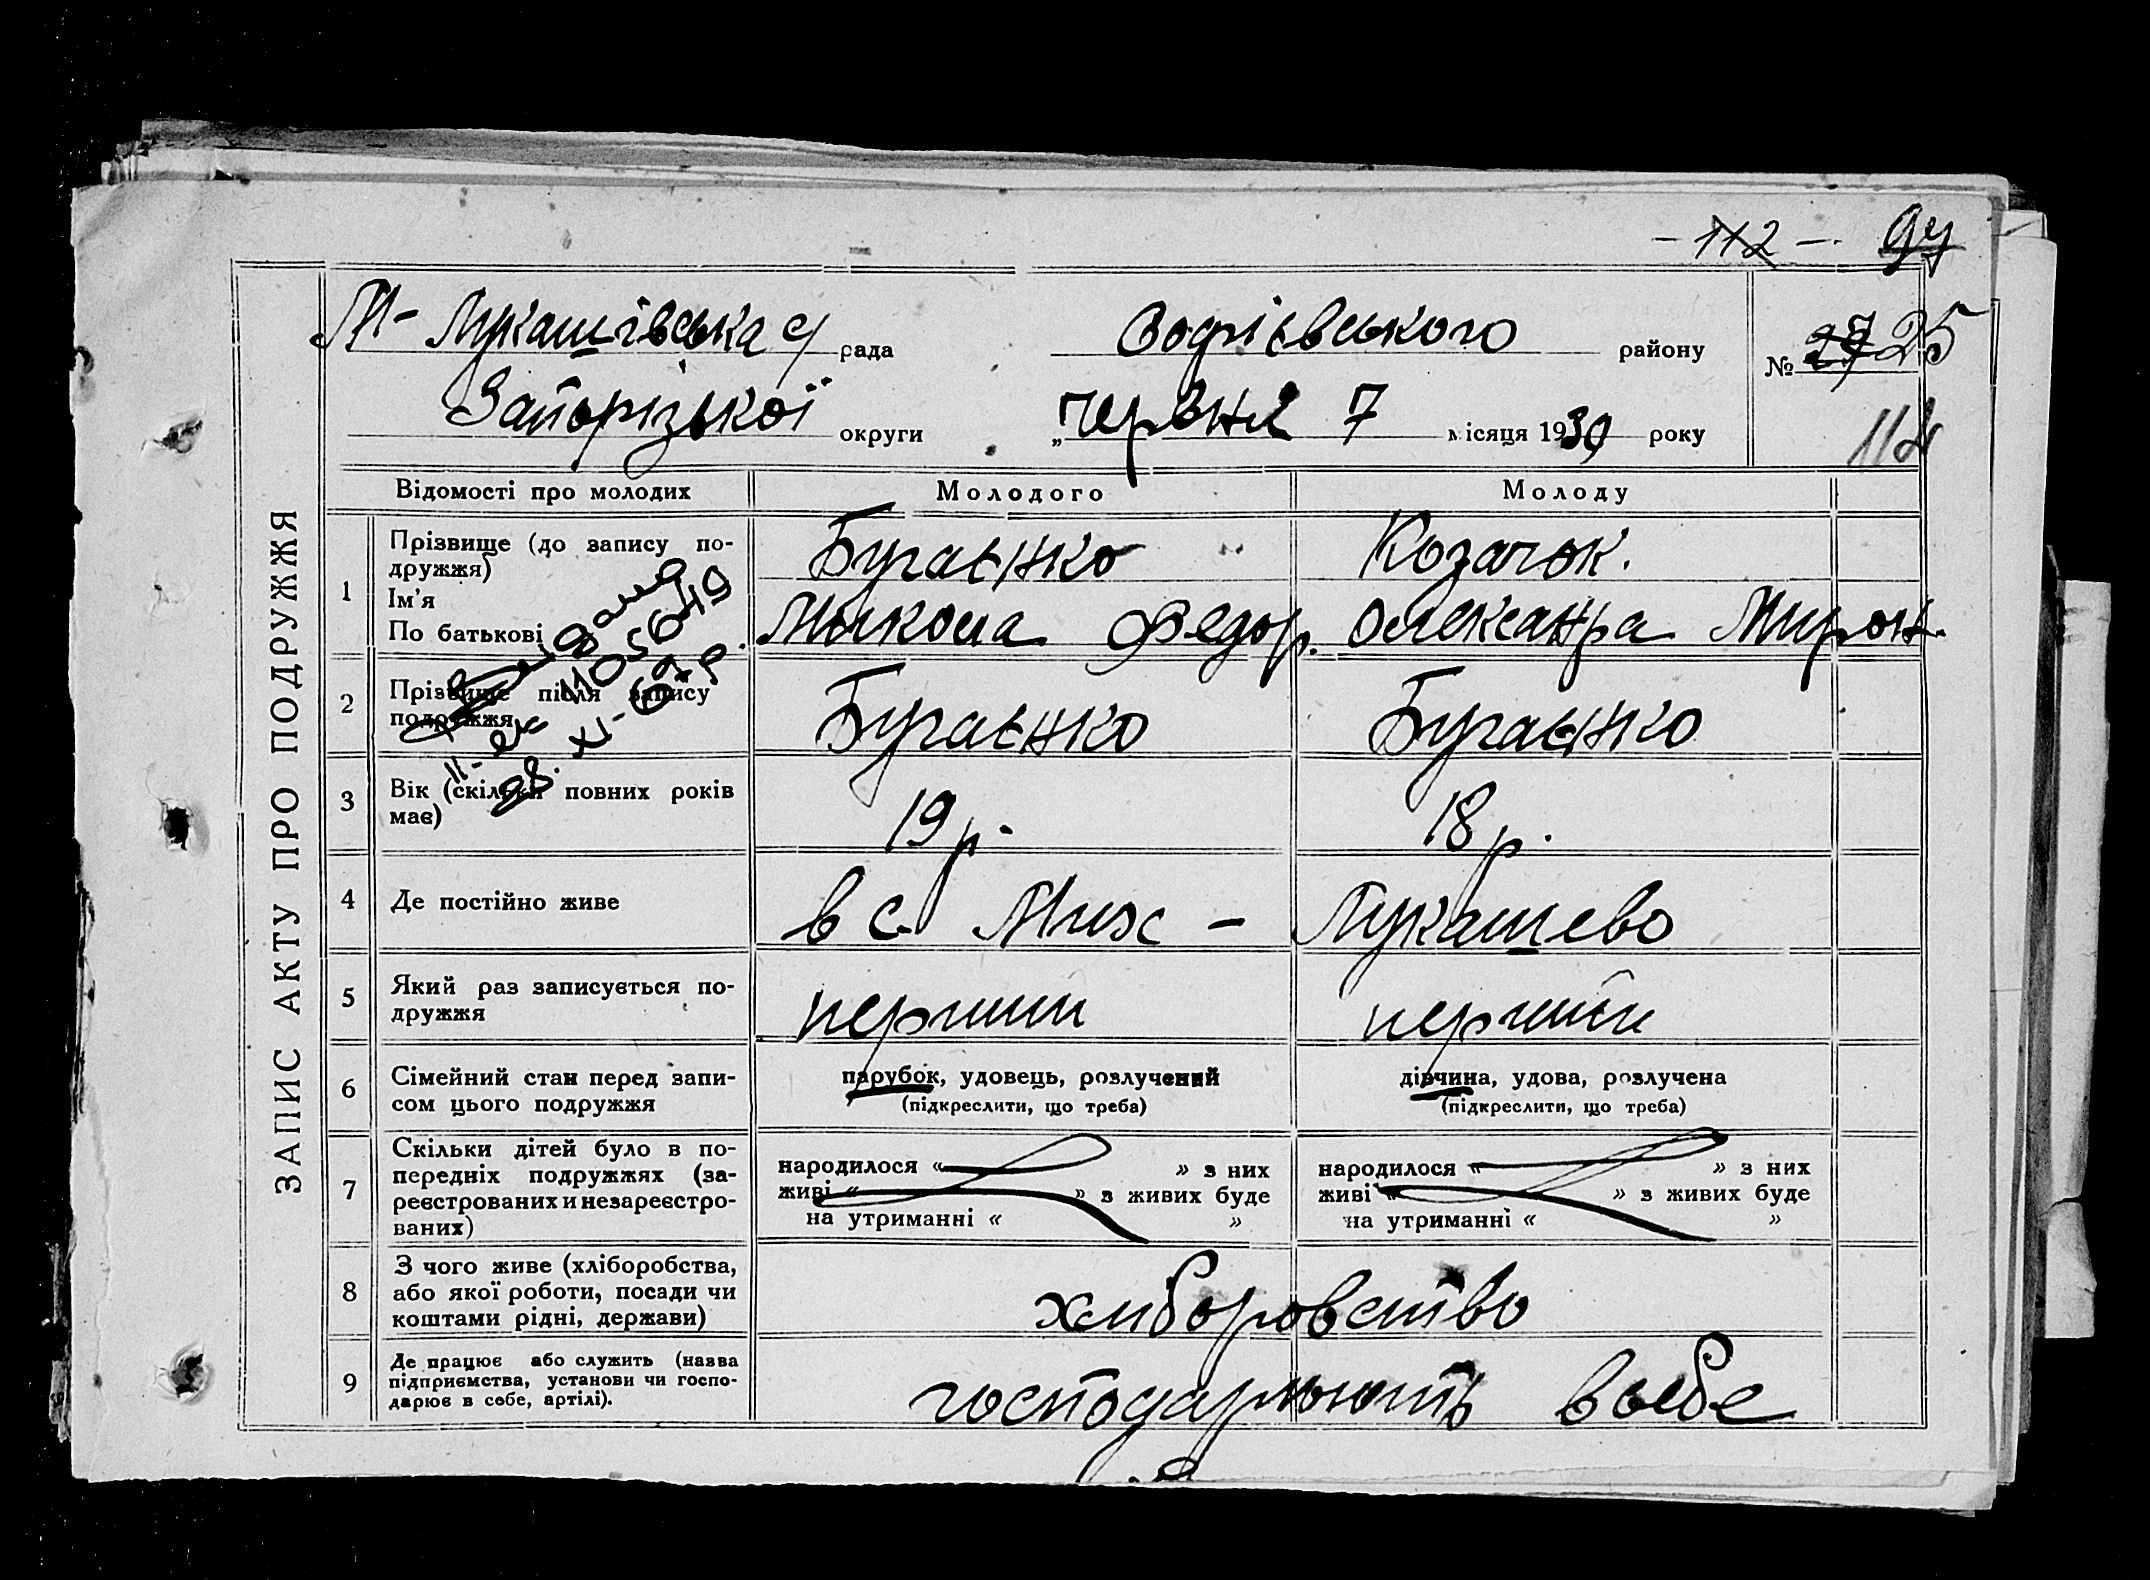 112 — 94
М- Лукашівська с/ рада Софієвського району № 27 25
Запорізької округи „червня 7 місяця 1930 року
114
ЗАПИС АКТУ ПРО ПОДРУЖЖЯ
Відомості про молодих Молодого Молоду
1 Прізвище (до запису по-
дружжя) Бугаєнко Козачок.
Ім’я
По батькові Микола Федор. Олександра Мирон.
2 Прізвище після запису
подружжя Бугаєнко Бугаєнко
1105649
28. XI-67 р.
3 Вік (скільки повних років
має) 19 р. 18 р.
4 Де постійно живе в с. Мих - Лукашево
5 Який раз записується по-
дружжя перший перший
6 Сімейний стан перед запи-
сом цього подружжя
парубок, удовець, розлучений
(підкреслити, що треба)
дівчина, удова, розлучена
(підкреслити, що треба)
7 Скільки дітей було в по-
передніх подружжях (за-
реєстрованих и незареєстро-
ваних)
народилося « » з них
живі « » з живих буде
на утриманні « »
народилося « » з них
живі « » з живих буде
на утриманні « »
8 З чого живе (хліборобства,
або якої роботи, посади чи
коштами рідні, держави)
хліборовство
9 Де працює або служить (назва
підприємства, установи чи госпо-
дарює в себе, артілі).
господарюють в себе